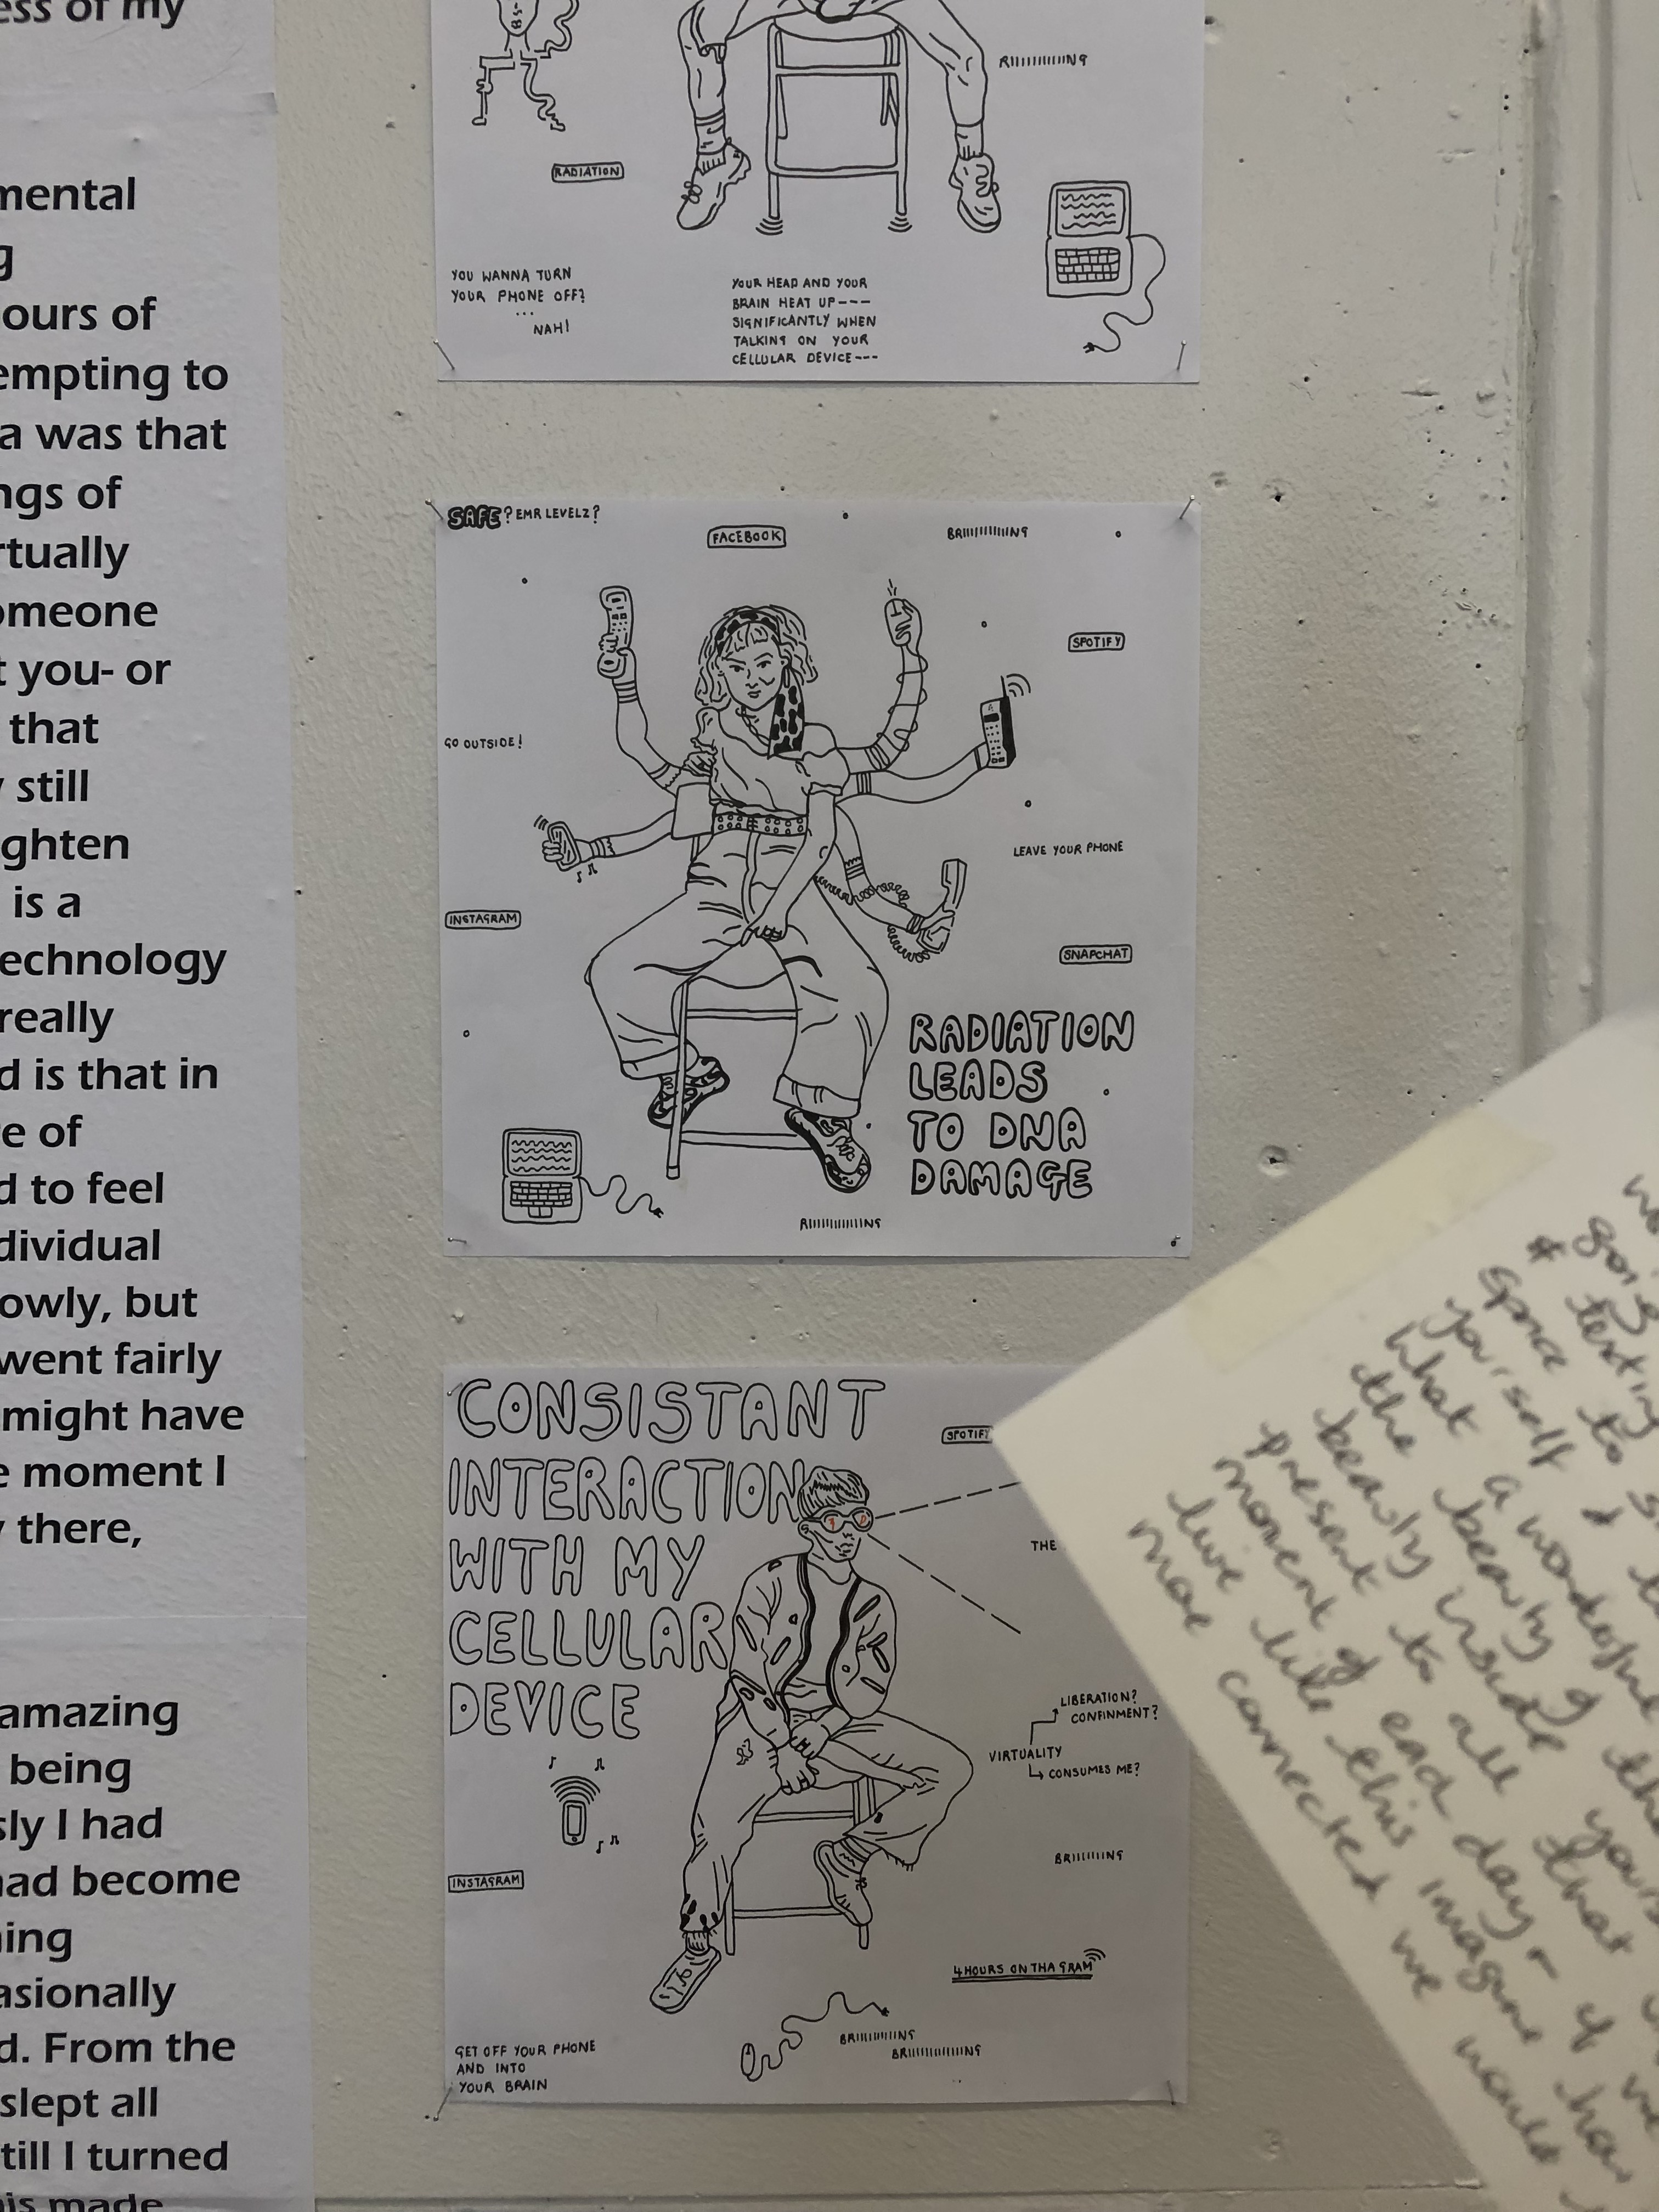 ess of my
mental
g
ours of
empting to
a was that
ngs of
rtually
omeone
t you- or
that
y still
ighten
is a
echnology
really
d is that in
re of
d to feel
dividual
owly, but
went fairly
might have
e moment I
y there,
amazing
being
sly I had
had become
ning
asionally
d. From the
slept all
till I turned
his made
RIIIIIIIIIIING
RADIATION
YOU WANNA TURN
YOUR PHONE OFF?
...
NAH!
YOUR HEAD AND YOUR
BRAIN HEAT UP---
SIGNIFICANTLY WHEN
TALKING ON YOUR
CELLULAR DEVICE---
SAFE? EMR LEVELZ?
FACEBOOK
BRIIIIIIIIIIING
SPOTIFY
GO OUTSIDE!
LEAVE YOUR PHONE
INSTAGRAM
SNAPCHAT
RADIATION
LEADS
TO DNA
DAMAGE
RIIIIIIIIIIIING
CONSISTANT
INTERACTION
WITH MY
CELLULAR
DEVICE
SPOTIFY
THE
LIBERATION?
CONFINMENT?
VIRTUALITY
CONSUMES ME?
BRIIIIIIING
INSTAGRAM
4 HOURS ON THA GRAM
BRIIIIIIIIIING
BRIIIIIIIIIIIING
GET OFF YOUR PHONE
AND INTO
YOUR BRAIN
going
& testing
Space to
yourself &
What a wonderful
the beauty of
beauty inside
present to all
moment of each day
live like this imagine how
more connected we would